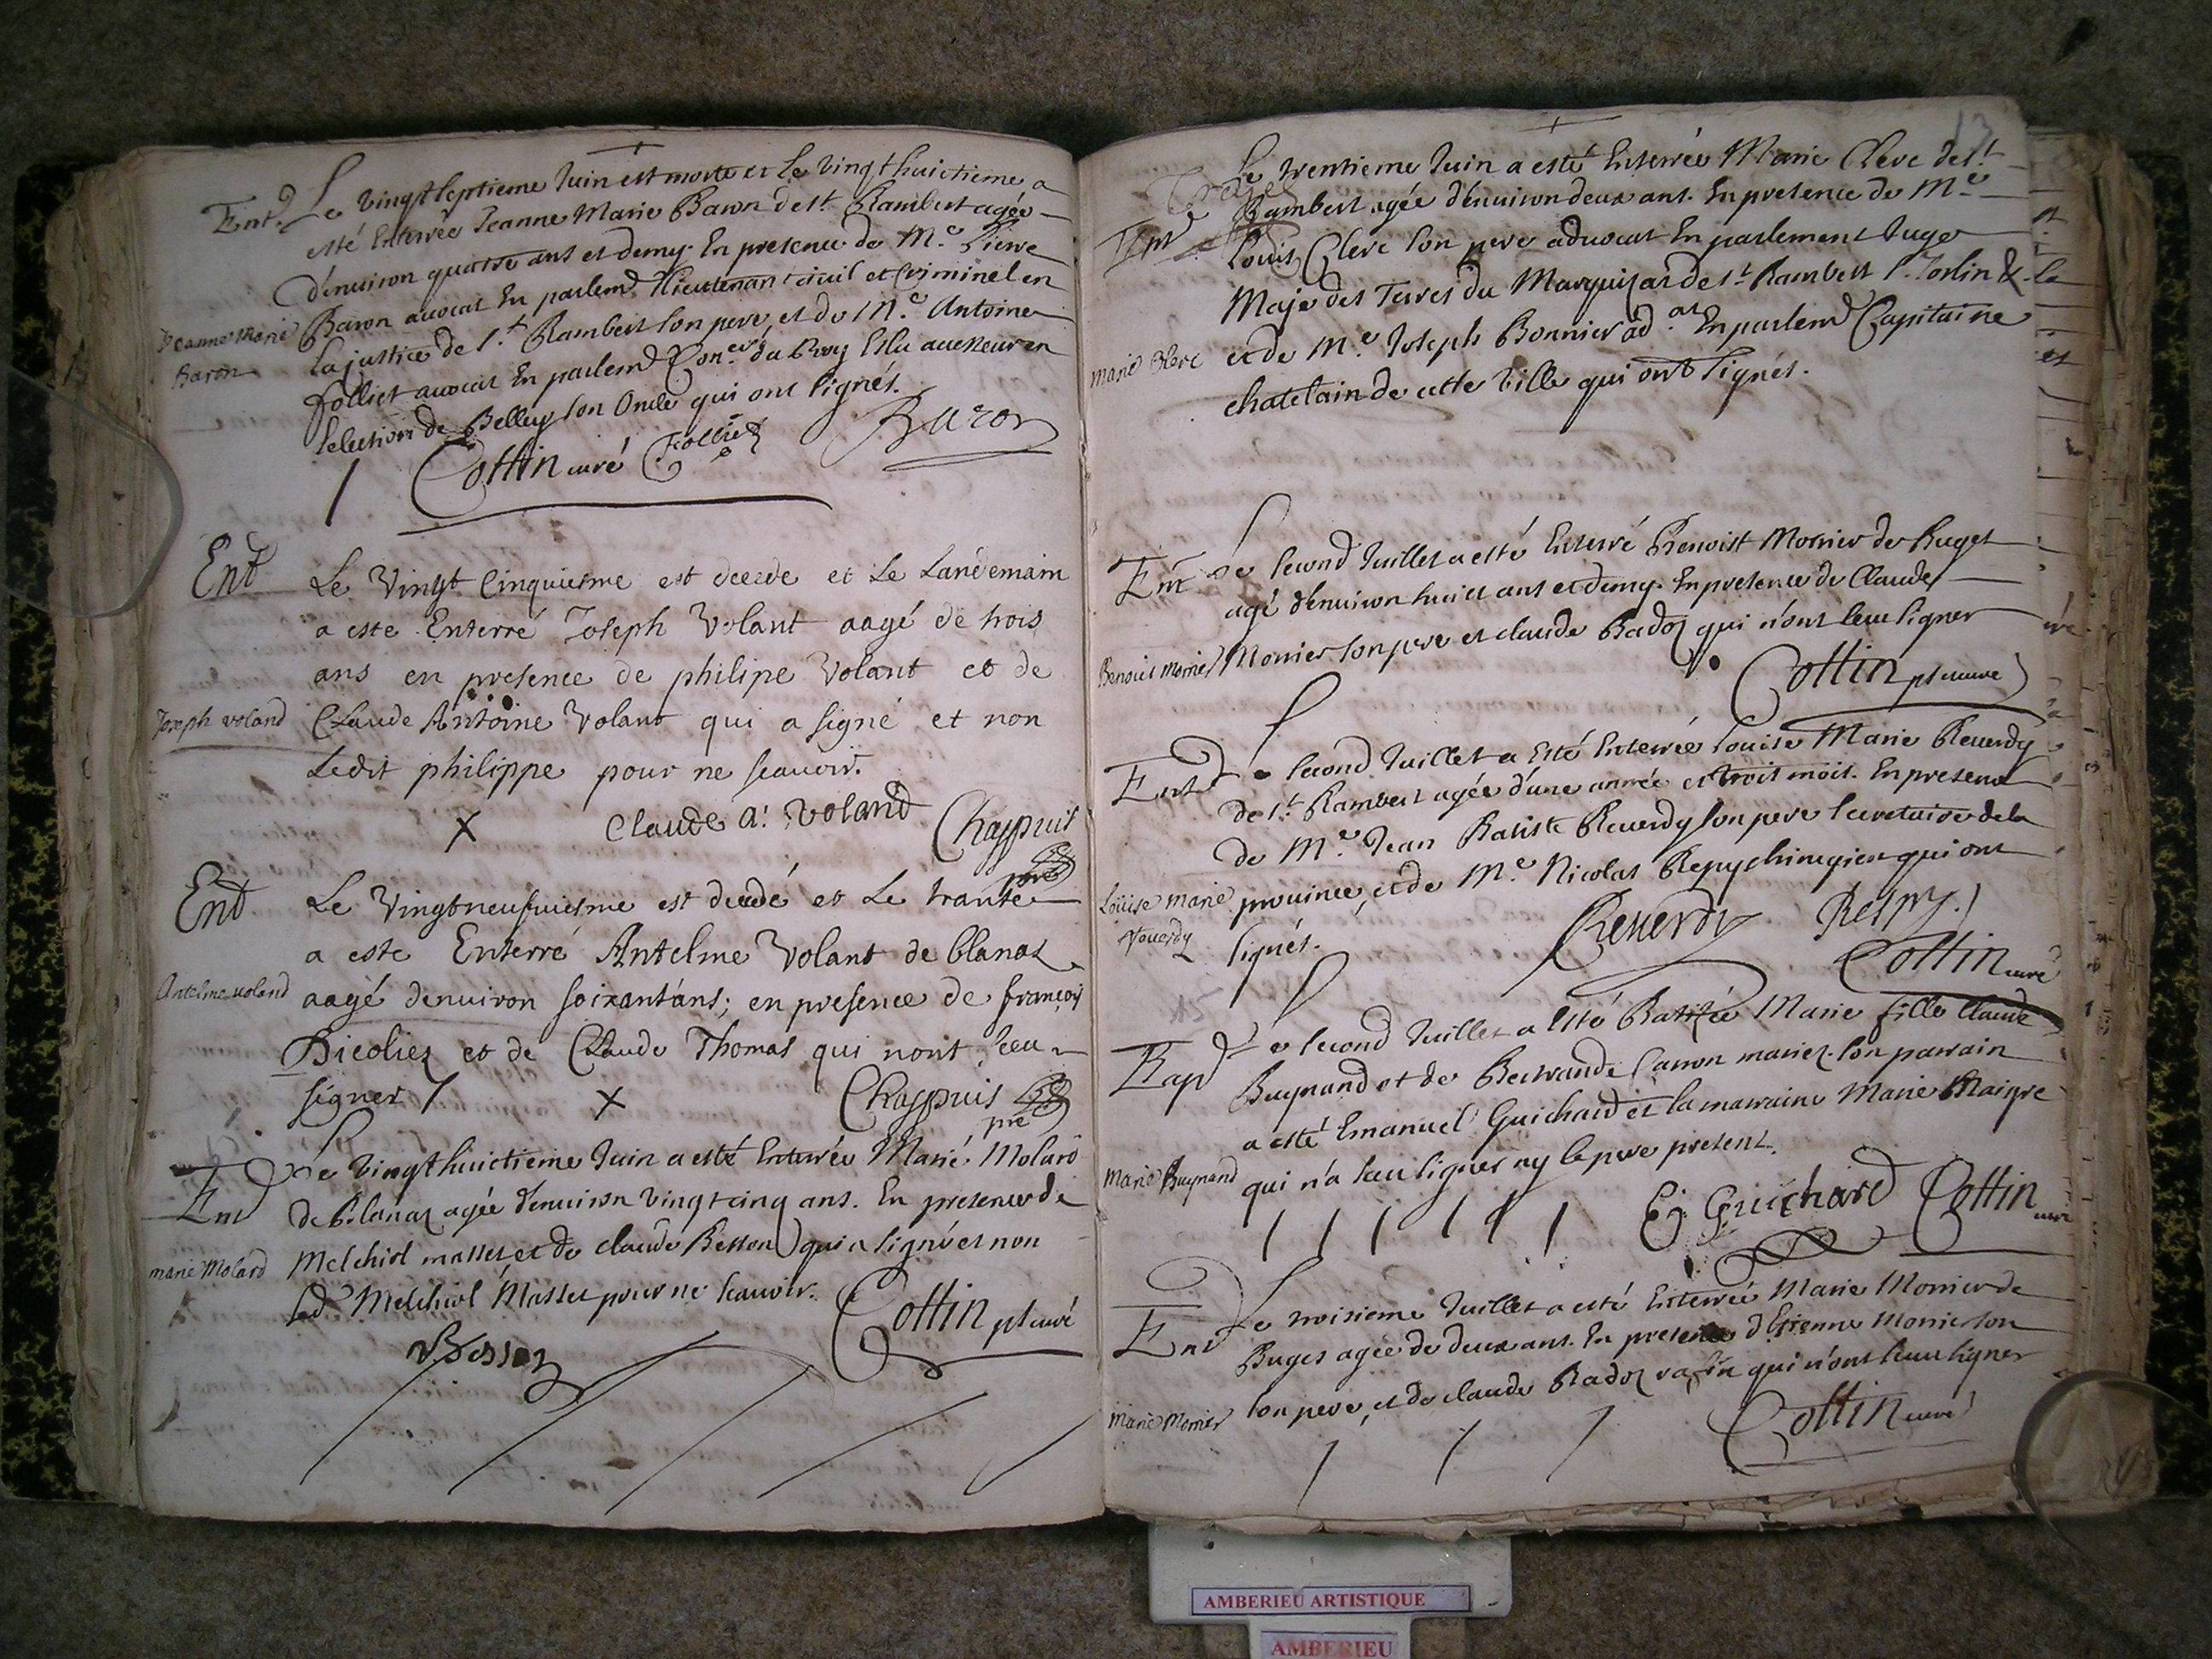 Ent. Le vingt septieme Juin est morte et le vingt huictieme a
esté Enterrée Jeanne Marie Baron de st. Rambert agée
d'enuiron quatre ans et demy. En presence de Me. Pierre
Jeanne Marie Baron
Baron auocat En parlemt. Lieutenant ciuil et Criminel en
la justice de St. Rambert son pere, et de Me. Antoine
folliet auocat En parlemt. Coner. du Roy Eslu assesseur en
lelection de Belley son Oncle qui ont signés.
Cottin curé Folliet Baron
Ent Le Vingt Cinquiesme est decede et Le Landemain
a este Enterré Joseph Volant aagé de trois
ans en presence de philipe Volant et de
Joseph voland
Claude Antoine Volant qui a signé et non
Ledit philippe pour ne scauoir.
X Claude A. Voland Chappuis
pre
Ent Le Vingtneufuiesme est decedé et Le trante
a este Enterré Antelme Volant de blanas
Antelme uoland
aagé denuiron soixant'ans; en presence de françois
Bicoliez et de Claude Thomas qui nont sceu
signer / X Chappuis
pre
Ent Le vingt huictieme Juin a esté Enterrée Marie Molard
de Blanaz agée d'enuiron vingt cinq ans. En presence de
marie Molard
Melchiol masset et de claude Besson qui a signé et non
led. Melchiol Masset pour ne scauoir.
Cottin pt curé
Besson
13
Le trentieme Juin a esté Enterrée Marie Clerc de st.
Ent Rambert agée d'enuiron deux ans. En presence de Me.
Louis Clerc son pere aduocat En parlement Juge
Maje des Terres du Marquisat de st. Rambert S. Sorlin &.
marie Clerc
et de Me. Joseph Bonnier adat. En parlemt. Capitaine
chatelain de cette ville qui ont signés.
Ent Le second Juillet a esté Enterré Benoist Monier de Buget
agé d'enuiron huict ans et demy. En presence de Claude
Benoist monier
Monier son pere et claude Badoz qui n'ont sceu signer
Cottin pt curé
Ent Le second Juillet a Esté Enterrée Louise Marie Reuerdy
de st. Rambert agée d'une année et trois mois. En presence
de Me. Jean Batiste Reuerdy son pere secretaire de la
Louise marie Reuerdy
prouince, et de Me. Nicolas Repy chirugien qui ont
signés. Reuerdy Respy
Cottin curé
Bapt Le second Juillet a Esté Batisée Marie fille Claude
Buynand et de Bertrande Canon mariez. Son parrain
a esté Emanuel Guichard et la marraine Marie Maigre
Marie Buynand
qui n'a sceu signer ny le pere present.
E. Guichard Cottin curé
Ent Le troisieme Juillet a esté Enterrée Marie Monier de
Buges agée de deux ans. En presence d'Etienne Monier son
marie Monier
son pere, et de claude Badoz qui n'ont sceu signer
Cottin curé
AMBERIEU ARTISTIQUE
AMBERIEU